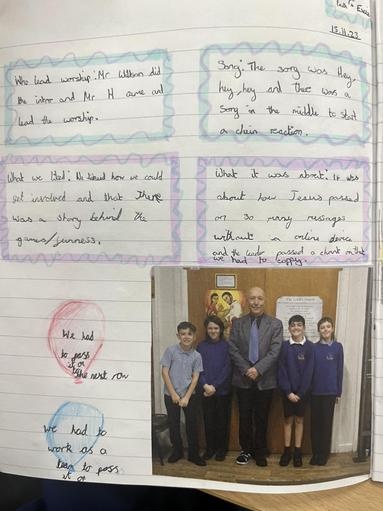 15.11.23
Who lead worship: Mr Wilson did
the intro and Mr H came and
lead the worship.
Song: The song was Hey,
hey, hey and there was a
song in the middle to start
a chain reaction.
What we liked: We liked how we could
get involved and that there
was a story behind the
games/funness.
What it was about: It was
about how Jesus passed
on so many messages
without a online device
and the leader passed a chant on that
we had to copy.
We had
to pass
it on
to
the next row
we had to
work as a
team to pass
it on
The Lord's Prayer